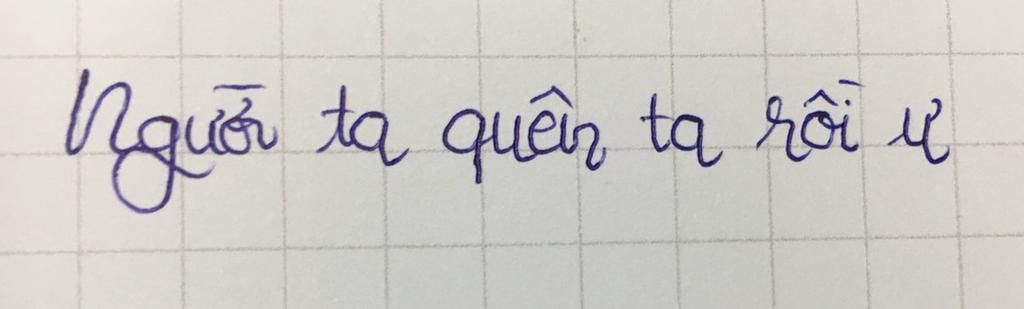 Người ta quên ta rồi ư